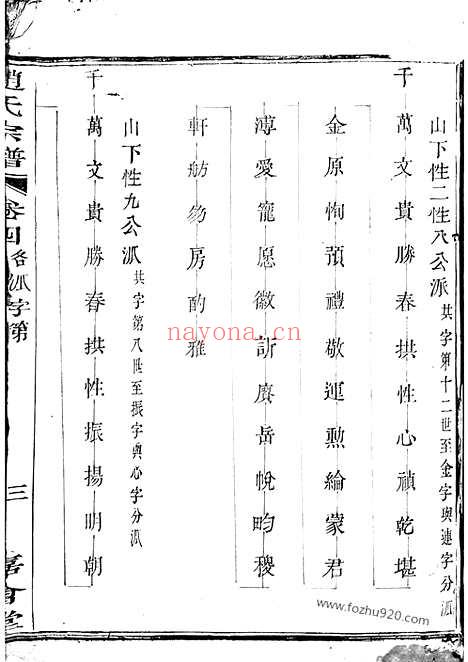 山下性二性八公派 共字第十二世至金字與連字分派
千萬文貴勝春拱性心禎乾堪
金原恂預禮敬運勲綸蒙君
溥愛寵愿徽訢賡岳悅昀稷
軒舫昉房酌雅
山下性九公派 共字第八世至振字與心字分派
千萬文貴勝春拱性振揚明朝
趙氏宗譜 卷四 各派字第 三
nayona.cn
www.fozhu920.com